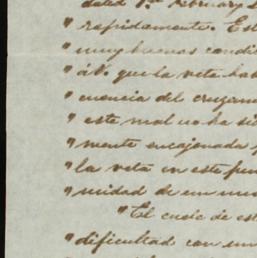 dated 1st February
" rapidamente. Est
" muy buenas condi
" á V. que la veta hab
" cuencia del cruzam
" este mal no ha si
" mente encajonada y
" la veta en este pun
" nidad de un mu
" El cusic de es
" dificultad con un